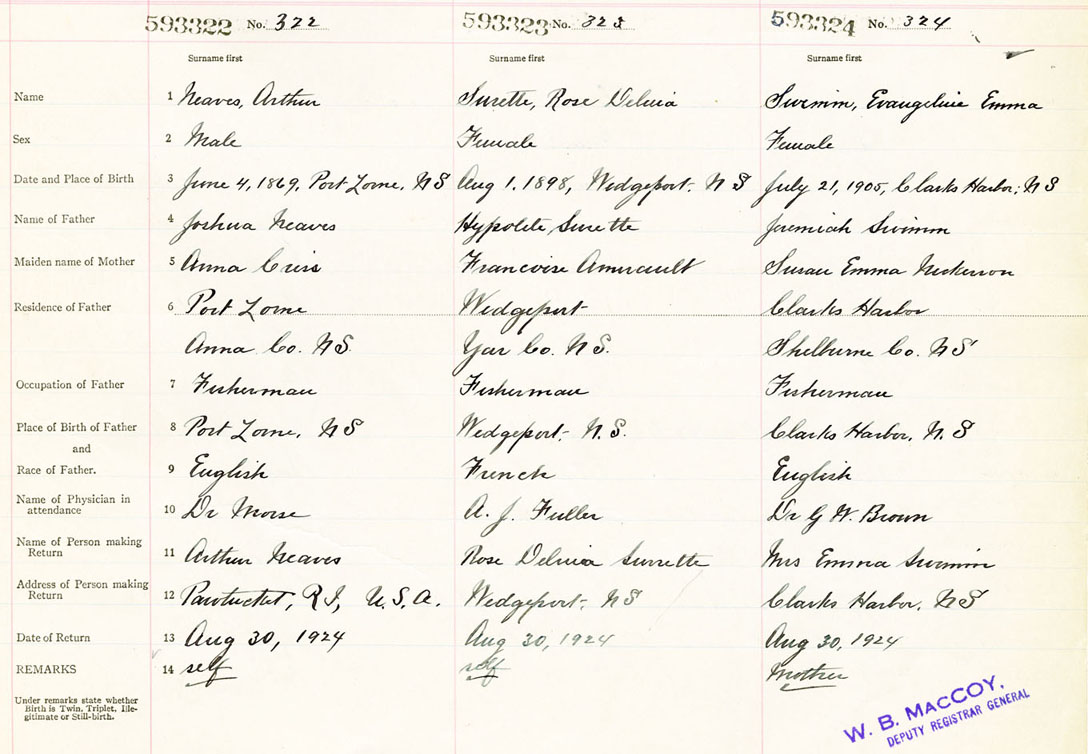 593322 No. 322 593323 No. 323 593324 No. 324
Surname first Surname first Surname first
Name 1 Neaves, Arthur Surette, Rose Delnia Swimm, Evangeline Emma
Sex 2 Male Female Female
Date and Place of Birth 3 June 4, 1869, Port Lorne, NS Aug 1, 1898, Wedgeport, NS July 21, 1905, Clarks Harbor, NS
Name of Father 4 Joshua Neaves Hypolite Surette Jeremiah Swimm
Maiden name of Mother 5 Anna Francoise Amirault Susan Emma Nickerson
Residence of Father 6 Port Lorne Wedgeport Clarks Harbor
Anna Co. NS. Yar Co. NS. Shelburne Co. NS
Occupation of Father 7 Fisherman Fisherman Fisherman
Place of Birth of Father 8 Port Lorne, NS Wedgeport, N.S. Clarks Harbor, N.S
and
Race of Father. 9 English French English
Name of Physician in
attendance 10 Dr Morse A. J. Fuller Dr G W. Brown
Name of Person making
Return 11 Arthur Neaves Rose Delnia Surrette Mrs Emma Swimm
Address of Person making
Return 12 Pawtucket, R I, U.S.A. Wedgeport, NS Clarks Harbor, NS
Date of Return 13 Aug 30, 1924 Aug 30, 1924 Aug 30, 1924
REMARKS 14 self self Mother
Under remarks state whether
Birth is Twin, Triplet, Ille-
gitimate or Still-birth.
W. B. MACCOY,
DEPUTY REGISTRAR GENERAL